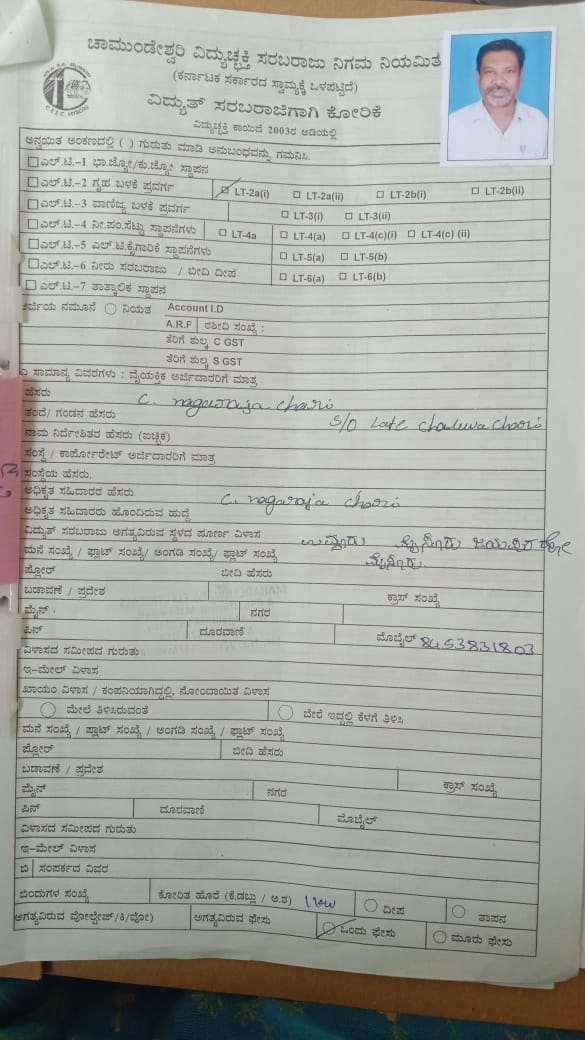 ಚಾಮುಂಡೇಶ್ವರಿ ವಿದ್ಯುಚ್ಛಕ್ತಿ ಸರಬರಾಜು ನಿಗಮ ನಿಯಮಿತ
(ಕರ್ನಾಟಕ ಸರ್ಕಾರದ ಸ್ವಾಮ್ಯಕ್ಕೆ ಒಳಪಟ್ಟಿದೆ)
C.E.S.C, MYSORE
ವಿದ್ಯುತ್ ಸರಬರಾಜಿಗಾಗಿ ಕೋರಿಕೆ
ವಿದ್ಯುಚ್ಛಕ್ತಿ ಕಾಯಿದೆ 2003ರ ಅಡಿಯಲ್ಲಿ
ಅನ್ವಯಿತ ಅಂಕಣದಲ್ಲಿ ( ) ಗುರುತು ಮಾಡಿ ಅನುಬಂಧವನ್ನು ಗಮನಿಸಿ.
ಎಲ್.ಟಿ.-1 ಭಾ.ಜ್ಯೋ/ಕು.ಜ್ಯೋ ಸ್ಥಾಪನ
ಎಲ್.ಟಿ.-2 ಗೃಹ ಬಳಕೆ ಪ್ರವರ್ಗ LT-2a(i) LT-2a(ii) LT-2b(i) LT-2b(ii)
ಎಲ್.ಟಿ.-3 ವಾಣಿಜ್ಯ ಬಳಕೆ ಪ್ರವರ್ಗ LT-3(i) LT-3(ii)
ಎಲ್.ಟಿ.-4 ನೀ.ಪಂ.ಸೆಟ್ಟು ಸ್ಥಾಪನೆಗಳು LT-4a LT-4(a) LT-4(c)(i) LT-4(c) (ii)
ಎಲ್.ಟಿ.-5 ಎಲ್.ಟಿ.ಕೈಗಾರಿಕೆ ಸ್ಥಾಪನೆಗಳು LT-5(a) LT-5(b)
ಎಲ್.ಟಿ.-6 ನೀರು ಸರಬರಾಜು / ಬೀದಿ ದೀಪ LT-6(a) LT-6(b)
ಎಲ್.ಟಿ.-7 ತಾತ್ಕಾಲಿಕ ಸ್ಥಾಪನ
ಅರ್ಜಿಯ ನಮೂನೆ ನಿಯತ Account I.D
A.R.F ರಶೀದಿ ಸಂಖ್ಯೆ :
ತೆರಿಗೆ ಶುಲ್ಕ C GST
ತೆರಿಗೆ ಶುಲ್ಕ S GST
ಎ ಸಾಮಾನ್ಯ ವಿವರಗಳು : ವೈಯಕ್ತಿಕ ಅರ್ಜಿದಾರರಿಗೆ ಮಾತ್ರ
ಹೆಸರು C. nagaraja chari
ತಂದೆ/ ಗಂಡನ ಹೆಸರು S/O Late chaluva chari
ನಾಮ ನಿರ್ದೇಶಿತರ ಹೆಸರು (ಐಚ್ಛಿಕ)
ಸಂಸ್ಥೆ / ಕಾರ್ಪೋರೇಟ್ ಅರ್ಜಿದಾರರಿಗೆ ಮಾತ್ರ
ಸಂಸ್ಥೆಯ ಹೆಸರು.
ಅಧಿಕೃತ ಸಹಿದಾರರ ಹೆಸರು C. nagaraja chari
ಅಧಿಕೃತ ಸಹಿದಾರರು ಹೊಂದಿರುವ ಹುದ್ದೆ
ವಿದ್ಯುತ್ ಸರಬರಾಜು ಅಗತ್ಯವಿರುವ ಸ್ಥಳದ ಪೂರ್ಣ ವಿಳಾಸ
ಮನೆ ಸಂಖ್ಯೆ / ಫ್ಲಾಟ್ ಸಂಖ್ಯೆ/ ಅಂಗಡಿ ಸಂಖ್ಯೆ/ ಫ್ಲಾಟ್ ಸಂಖ್ಯೆ ಮೈಸೂರು
ಫ್ಲೋರ್ ಬೀದಿ ಹೆಸರು ಮೈಸೂರು
ಬಡಾವಣೆ / ಪ್ರದೇಶ ಕ್ರಾಸ್ ಸಂಖ್ಯೆ
ಮೈನ್ ನಗರ
ಪಿನ್ ದೂರವಾಣಿ ಮೊಬೈಲ್ 8453831803
ವಿಳಾಸದ ಸಮೀಪದ ಗುರುತು
ಇ-ಮೇಲ್ ವಿಳಾಸ
ಖಾಯಂ ವಿಳಾಸ / ಕಂಪನಿಯಾಗಿದ್ದಲ್ಲಿ, ನೋಂದಾಯಿತ ವಿಳಾಸ
ಮೇಲೆ ತಿಳಿಸಿರುವಂತೆ ಬೇರೆ ಇದ್ದಲ್ಲಿ ಕೆಳಗೆ ತಿಳಿಸಿ
ಮನೆ ಸಂಖ್ಯೆ / ಪ್ಲಾಟ್ ಸಂಖ್ಯೆ / ಅಂಗಡಿ ಸಂಖ್ಯೆ / ಫ್ಲಾಟ್ ಸಂಖ್ಯೆ
ಫ್ಲೋರ್ ಬೀದಿ ಹೆಸರು
ಬಡಾವಣೆ / ಪ್ರದೇಶ ಕ್ರಾಸ್ ಸಂಖ್ಯೆ
ಮೈನ್ ನಗರ
ಪಿನ್ ದೂರವಾಣಿ ಮೊಬೈಲ್
ವಿಳಾಸದ ಸಮೀಪದ ಗುರುತು
ಇ-ಮೇಲ್ ವಿಳಾಸ
ಬಿ ಸಂಪರ್ಕದ ವಿವರ
ಬಿಂದುಗಳ ಸಂಖ್ಯೆ ಕೋರಿತ ಹೊರೆ (ಕಿ.ಡಬ್ಲು / ಅ.ಶ) 1kw ದೀಪ ತಾಪನ
ಅಗತ್ಯವಿರುವ ವೋಲ್ಟೇಜ್/ಕಿ/ವೋ) ಅಗತ್ಯವಿರುವ ಫೇಸು ಒಂದು ಫೇಸು ಮೂರು ಫೇಸು